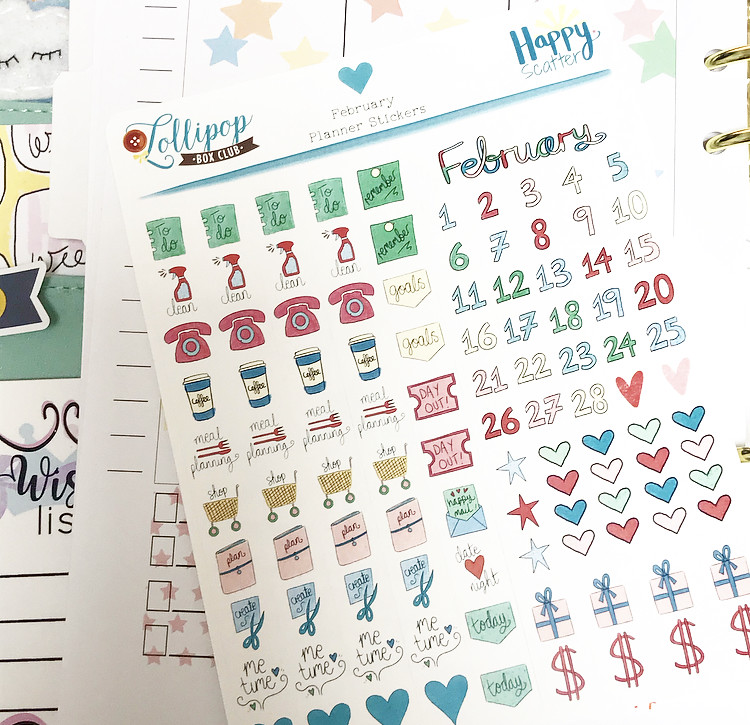 Happy
Scatter
February
Planner Stickers
Lollipop
BOX CLUB
February
1 2 3 4 5
6 7 8 9 10
11 12 13 14 15
16 17 18 19 20
21 22 23 24 25
26 27 28
To do To do To do To do remember
remember
clean clean clean clean
goals
goals
coffee coffee coffee coffee
DAY OUT!
meal planning meal planning meal planning meal planning
DAY OUT!
shop shop shop shop
happy mail!
plan plan plan plan
date night
create create create create
today
me time me time me time me time
today
$ $ $ $
Wis
list